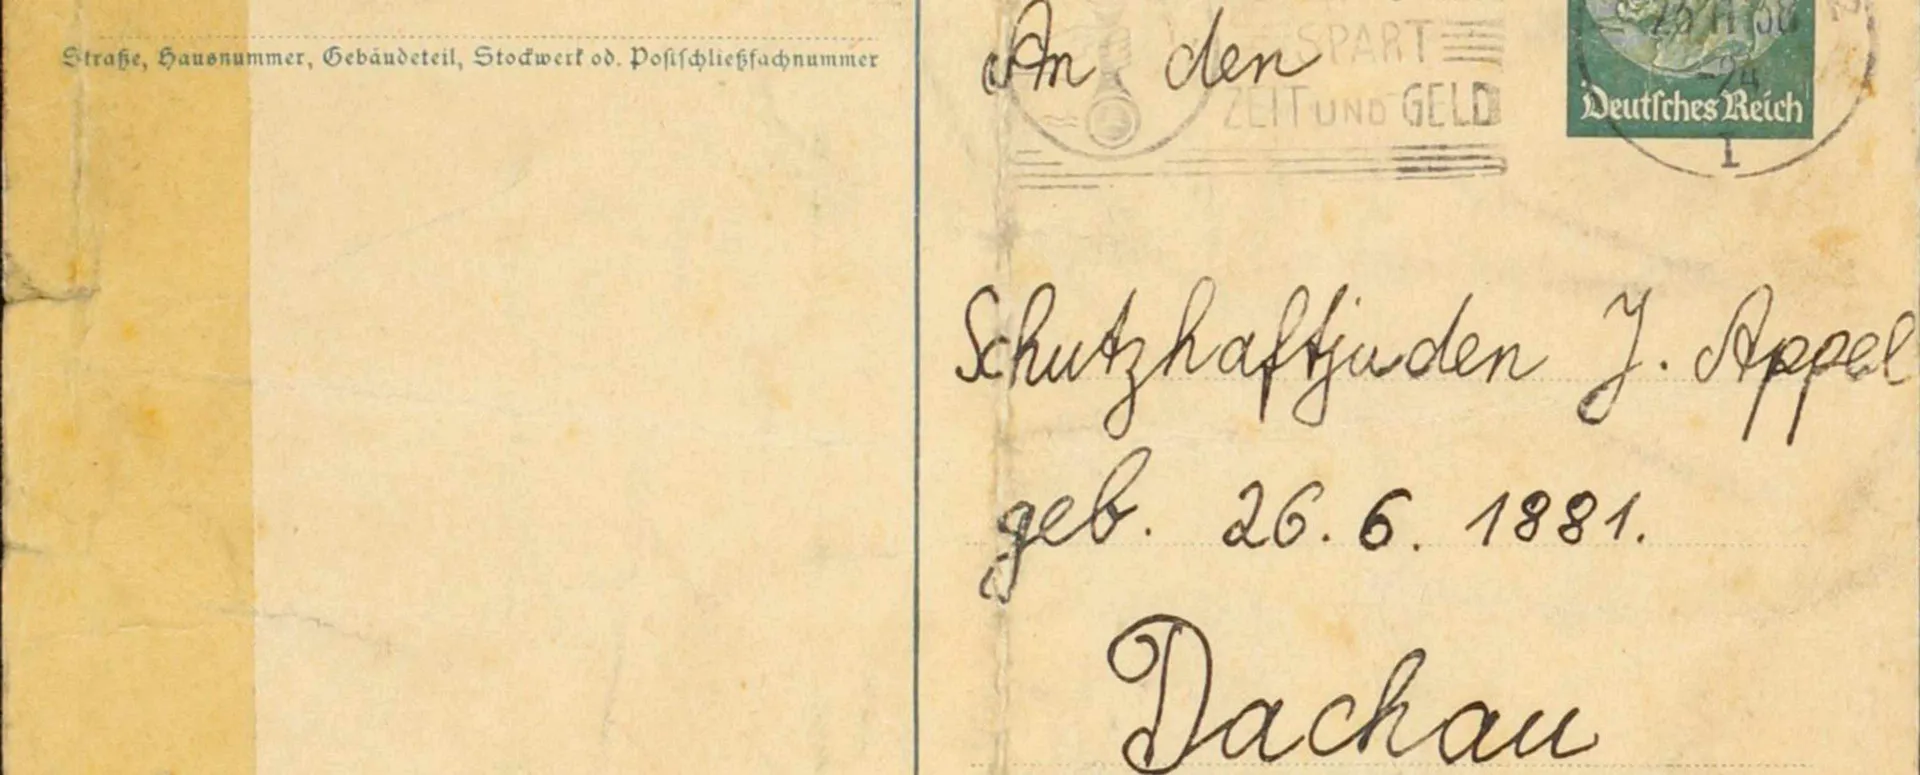 Straße, Hausnummer, Gebäudeteil, Stockwerk od. Postschließfachnummer
An den
SPART
ZEIT UND GELD
Deutsches Reich
24
1
Schutzhaftjuden J. Appel
geb. 26. 6. 1881.
Dachau